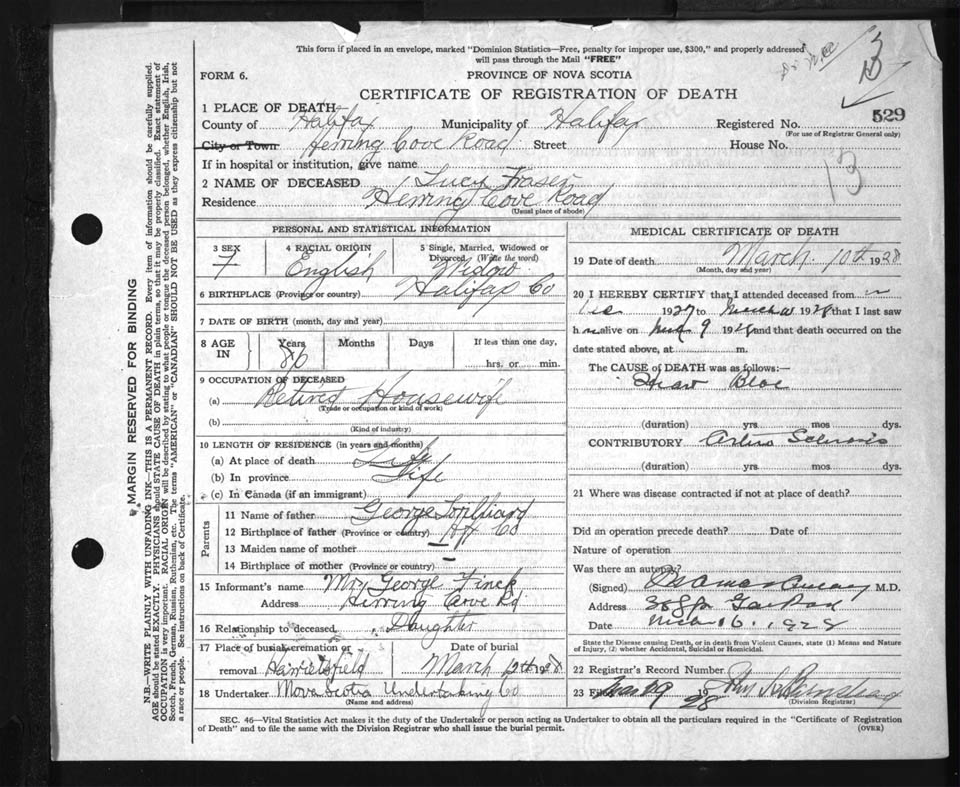 This form if placed in an envelope, marked "Dominion Statistics—Free, penalty for improper use, $300," and properly addressed
will pass through the Mail "FREE"
FORM 6. PROVINCE OF NOVA SCOTIA
CERTIFICATE OF REGISTRATION OF DEATH
529
13
1 PLACE OF DEATH
County of Halifax Municipality of Halifax Registered No.
(For use of Registrar General only)
City or Town Herring Cove Road Street House No.
If in hospital or institution, give name
2 NAME OF DECEASED Lucy Fraser
Residence Herring Cove Road
(Usual place of abode)
PERSONAL AND STATISTICAL INFORMATION
3 SEX 4 RACIAL ORIGIN 5 Single, Married, Widowed or
Divorced (Write the word)
F English Widow
6 BIRTHPLACE (Province or country) Halifax Co
7 DATE OF BIRTH (month, day and year)
8 AGE IN Years Months Days If less than one day,
86 hrs. or min.
9 OCCUPATION OF DECEASED
(a) Retired Housewife
(Trade or occupation or kind of work)
(b)
(Kind of industry)
10 LENGTH OF RESIDENCE (in years and months)
(a) At place of death Life
(b) In province Life
(c) In Canada (if an immigrant)
Parents
11 Name of father George
12 Birthplace of father (Province or country) Hfx Co
13 Maiden name of mother —
14 Birthplace of mother (Province or country) —
15 Informant's name Mrs George Finck
Address Herring Cove Rd
16 Relationship to deceased Daughter
17 Place of burial, cremation or Date of burial
removal Harrietsfield March 12th 1928
18 Undertaker Nova Scotia Undertaking Co
(Name and address)
MEDICAL CERTIFICATE OF DEATH
19 Date of death March 10th 1928
(Month, day and year)
20 I HEREBY CERTIFY that I attended deceased from
1927 to March 10 1928 that I last saw
h alive on Mch 9 1928 and that death occurred on
date stated above, at m.
The CAUSE OF DEATH was as follows:—
Heart Bloc
(duration) yrs mos dys.
CONTRIBUTORY Arterio Sclerosis
(duration) yrs mos dys.
21 Where was disease contracted if not at place of death?
Did an operation precede death? Date of
Nature of operation
Was there an autopsy?
(Signed) M.D.
Address
Date 1928
State the Disease causing Death, or in death from Violent Causes, state (1) Means and Nature
of Injury, (2) whether Accidental, Suicidal or Homicidal.
22 Registrar's Record Number
23 Filed Mar 19 1928
(Division Registrar)
SEC. 46—Vital Statistics Act makes it the duty of the Undertaker or person acting as Undertaker to obtain all the particulars required in the "Certificate of Registration
of Death" and to file the same with the Division Registrar who shall issue the burial permit.
(OVER)
MARGIN RESERVED FOR BINDING
N.B.—WRITE PLAINLY WITH UNFADING INK—THIS IS A PERMANENT RECORD. Every item of information should be carefully supplied.
AGE should be stated EXACTLY. PHYSICIANS should STATE CAUSE OF DEATH in plain terms, so that it may be properly classified. Exact statement of
OCCUPATION is very important. RACIAL ORIGIN will be described by stating to what people or tongue the deceased person belonged, whether English, Irish,
Scotch, French, German, Russian, Ruthenian, etc. The terms "AMERICAN" or "CANADIAN" SHOULD NOT BE USED as they express citizenship but not
a race or people. See instructions on back of Certificate.